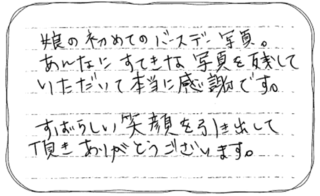 娘の初めてのバースデー写真。
あんなにすてきな写真を残して
いただいて本当に感謝です。
すばらしい笑顔を引き出して
頂きありがとうございます。